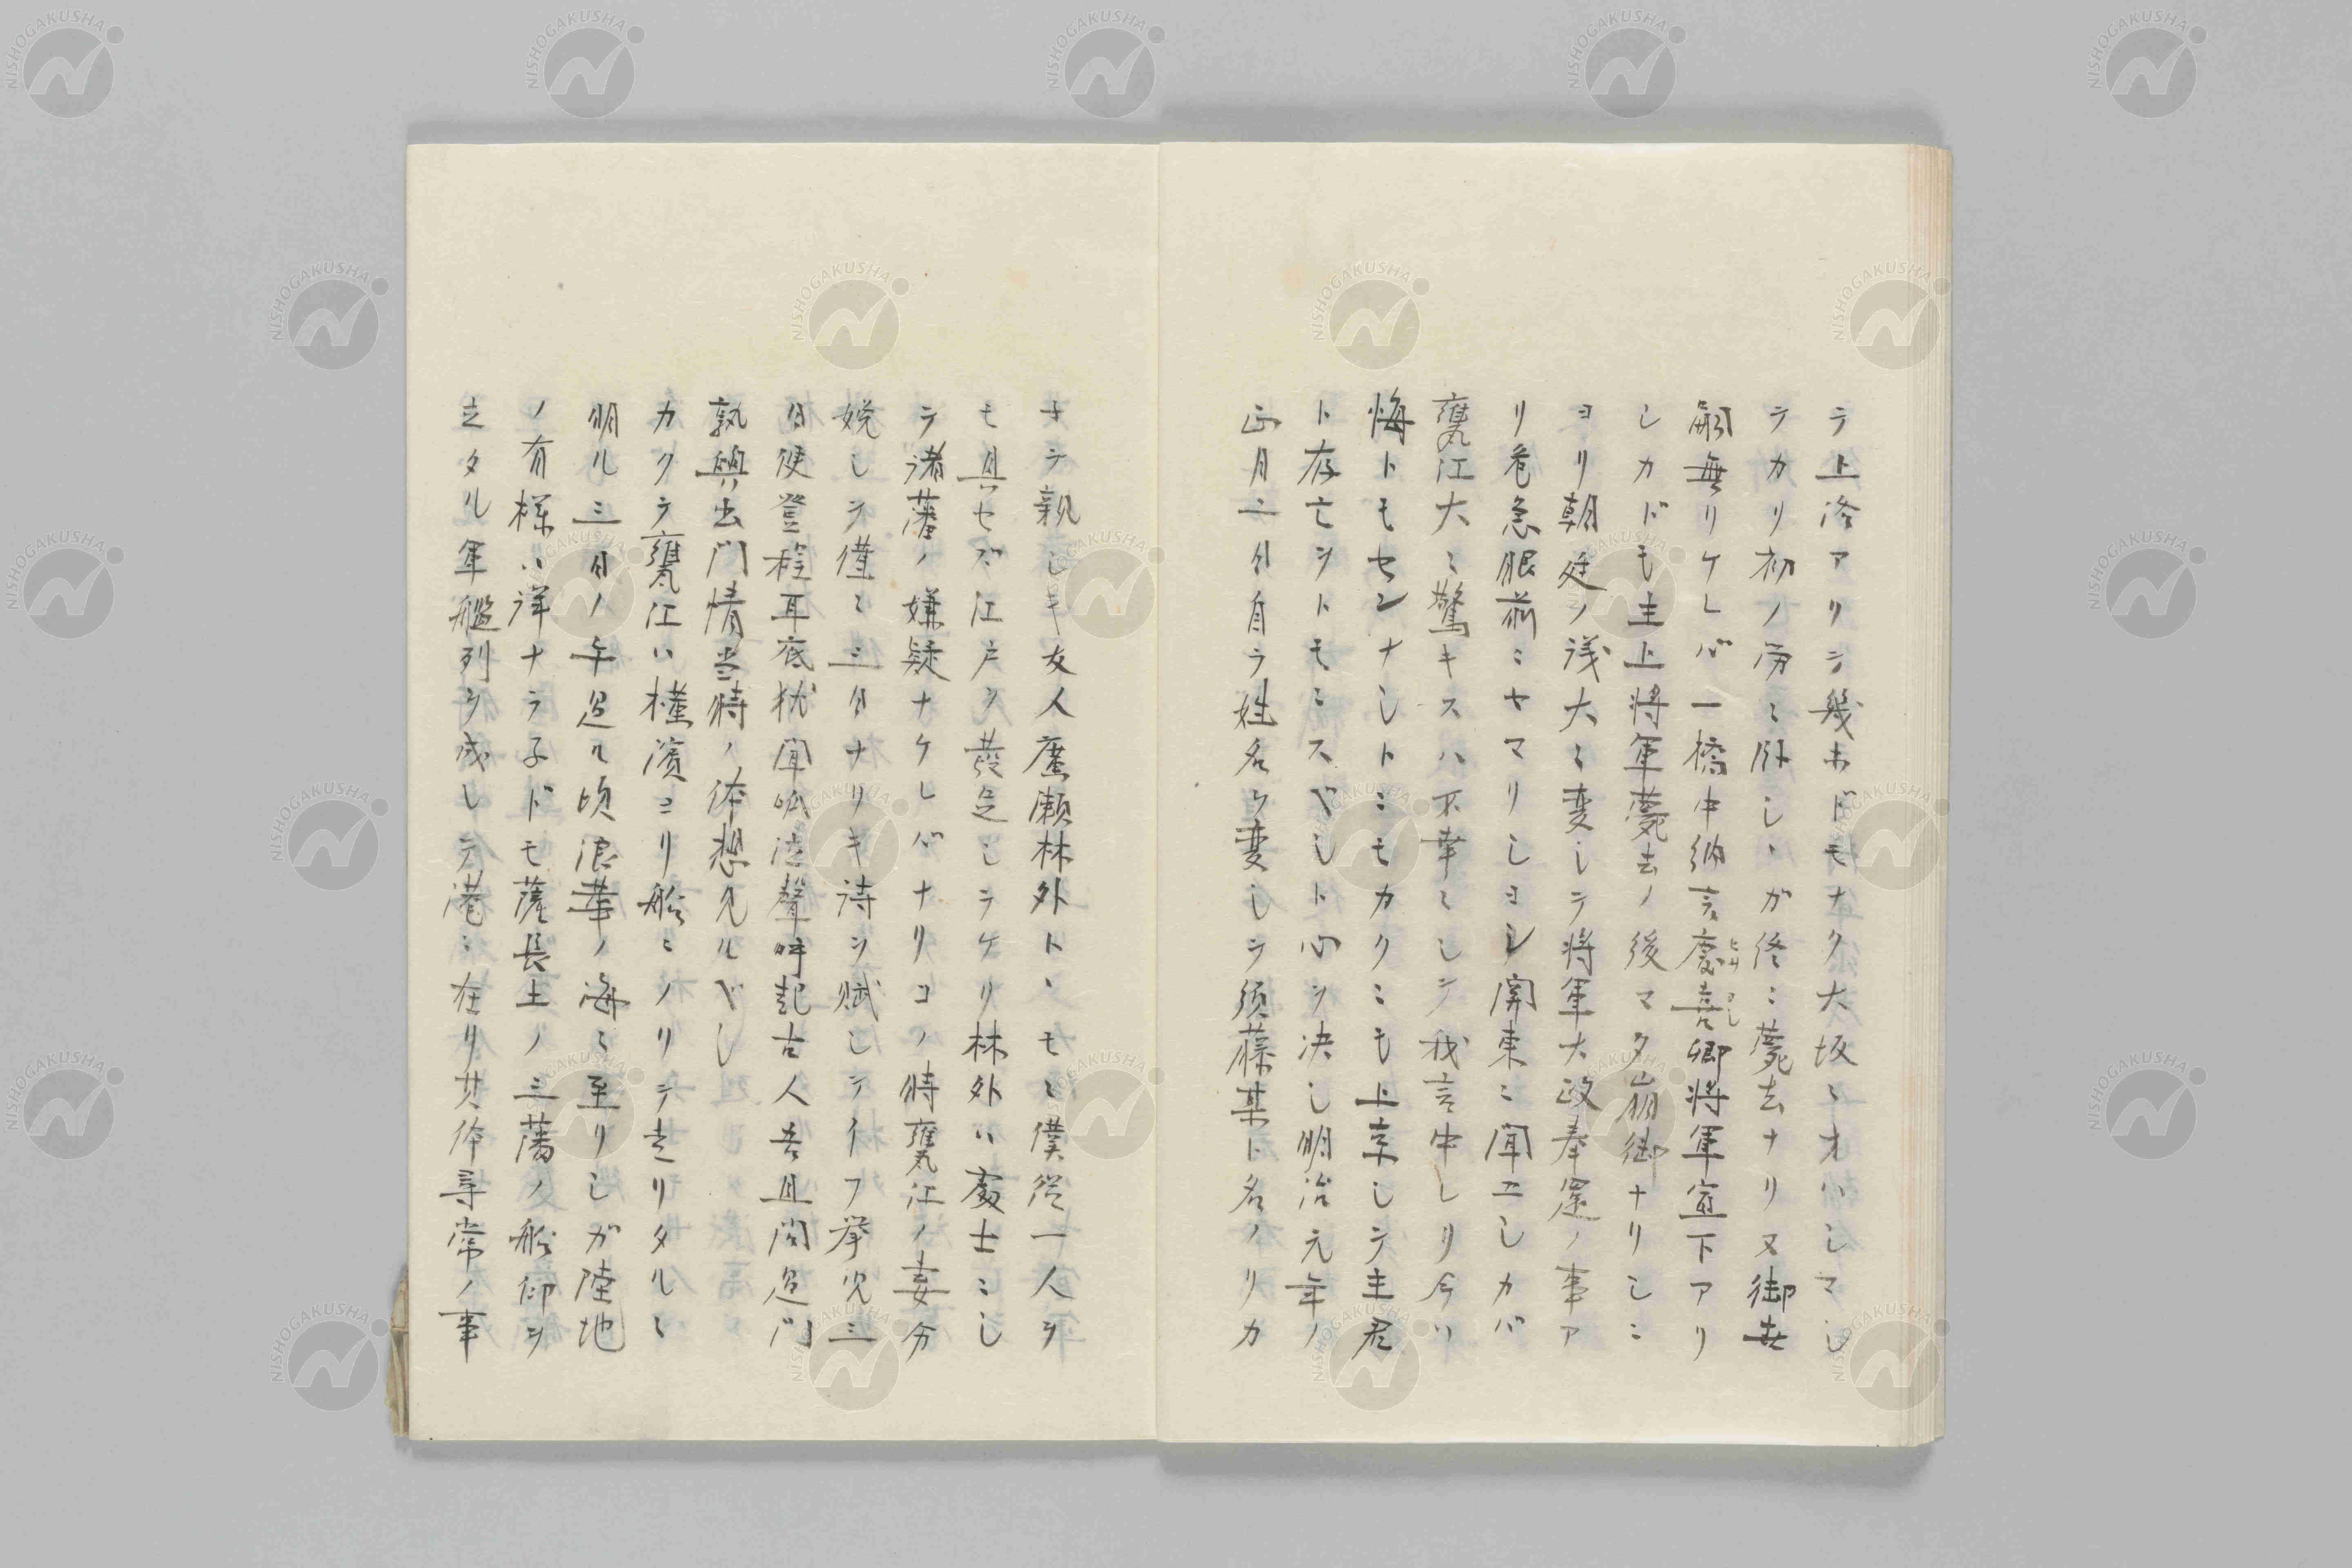 テ上洛アリシヲ幾ホドモナク大坂ニオハシマし
テカリ初ノ労ニ臥し、ガ終ニ薨去ナリ又御世
嗣無リケレバ一橋中納言慶喜卿将軍宣下アリ
ヒサ
ヨし
しカドモ主上将軍薨去ノ後マタ崩御ナリしニ
ヨリ朝廷ノ議大ニ変しテ将軍大政奉還ノ事ア
リ危急眼前ニセマリしヨし関東ニ聞エしカバ
甕江大ニ驚キスハ不幸ニしテ我言中レリ今ハ
悔トモセンナしトニモカクニモ上京しテ主君
ト存亡ヲトモニスベしト心ヲ決し明治元年ノ
正月二日自ラ姓名ヲ変しテ須藤某ト名ノリカ
子テ親しキ友人廣瀬林外ト、モニ僕従一人ヲ
モ具セズ江戸ヲ発足しテケリ林外ハ處士ニし
テ諸藩ノ嫌疑ナケレバナリコノ時甕江ノ妻分
娩しテ僅ニ三日ナリキ詩ヲ賦しテイフ挙児三
日便登程耳底猶聞呱泣聲呼起古人吾且問過門
孰與出門情当時ノ体想見ルベし
カクテ甕江ハ横濱ヨリ船ニノリテ走リタルニ
明ル三日ノ午過ル頃浪華ノ海ニ至リしガ陸地
ノ有様ハ詳ナラ子ドモ薩長土ノ三藩ノ船印ヲ
立タル軍艦列ヲ成しテ港ニ在リ其体尋常ノ事
NISHOGAKUSHA